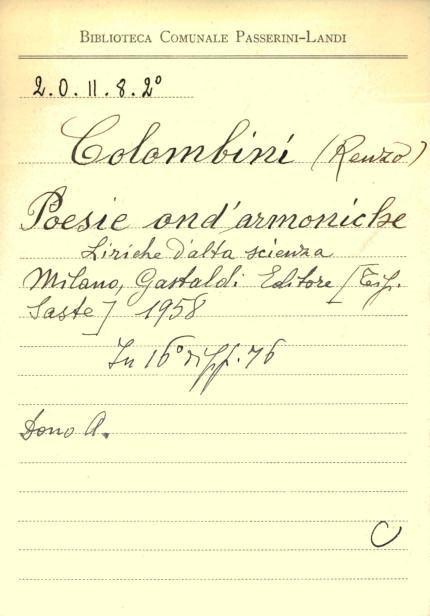 BIBLIOTECA COMUNALE PASSERINI-LANDI
2.O.II.8.2°
Colombini (Renzo)
Poesie ond'armoniche
Liriche d'alta scienza
Milano, Gastaldi Editore [Tip.
Saste] 1958
In 16° di pp. 76
Dono A.
C